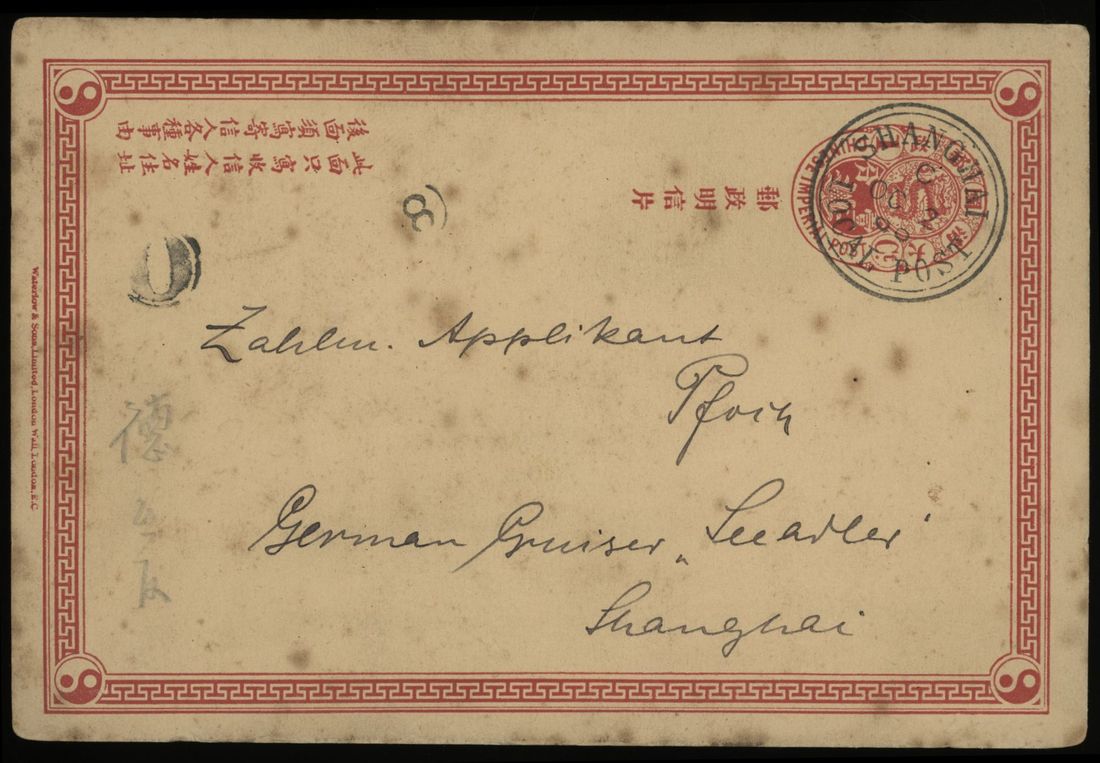 後面須寫寄信人各種事由
此面只寫收信人姓名住址
郵政明信片
CHINESE IMPERIAL POST
SHANGHAI LOCAL POST
C
OC 2
Zahlm. Applikant
German Cruiser „Seeadler“
Shanghai
德
Waterlow & Sons, Limited, London Wall, London, E.C